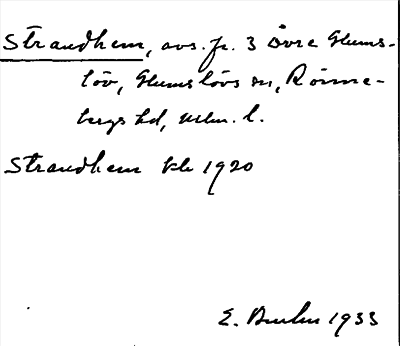 Strandhem, avs. fr. 3 Övre Glums-
löv, Glumslövs sn, Rönne-
bergs hd, Mlm. l.
Strandhem kb 1920
E. 1933